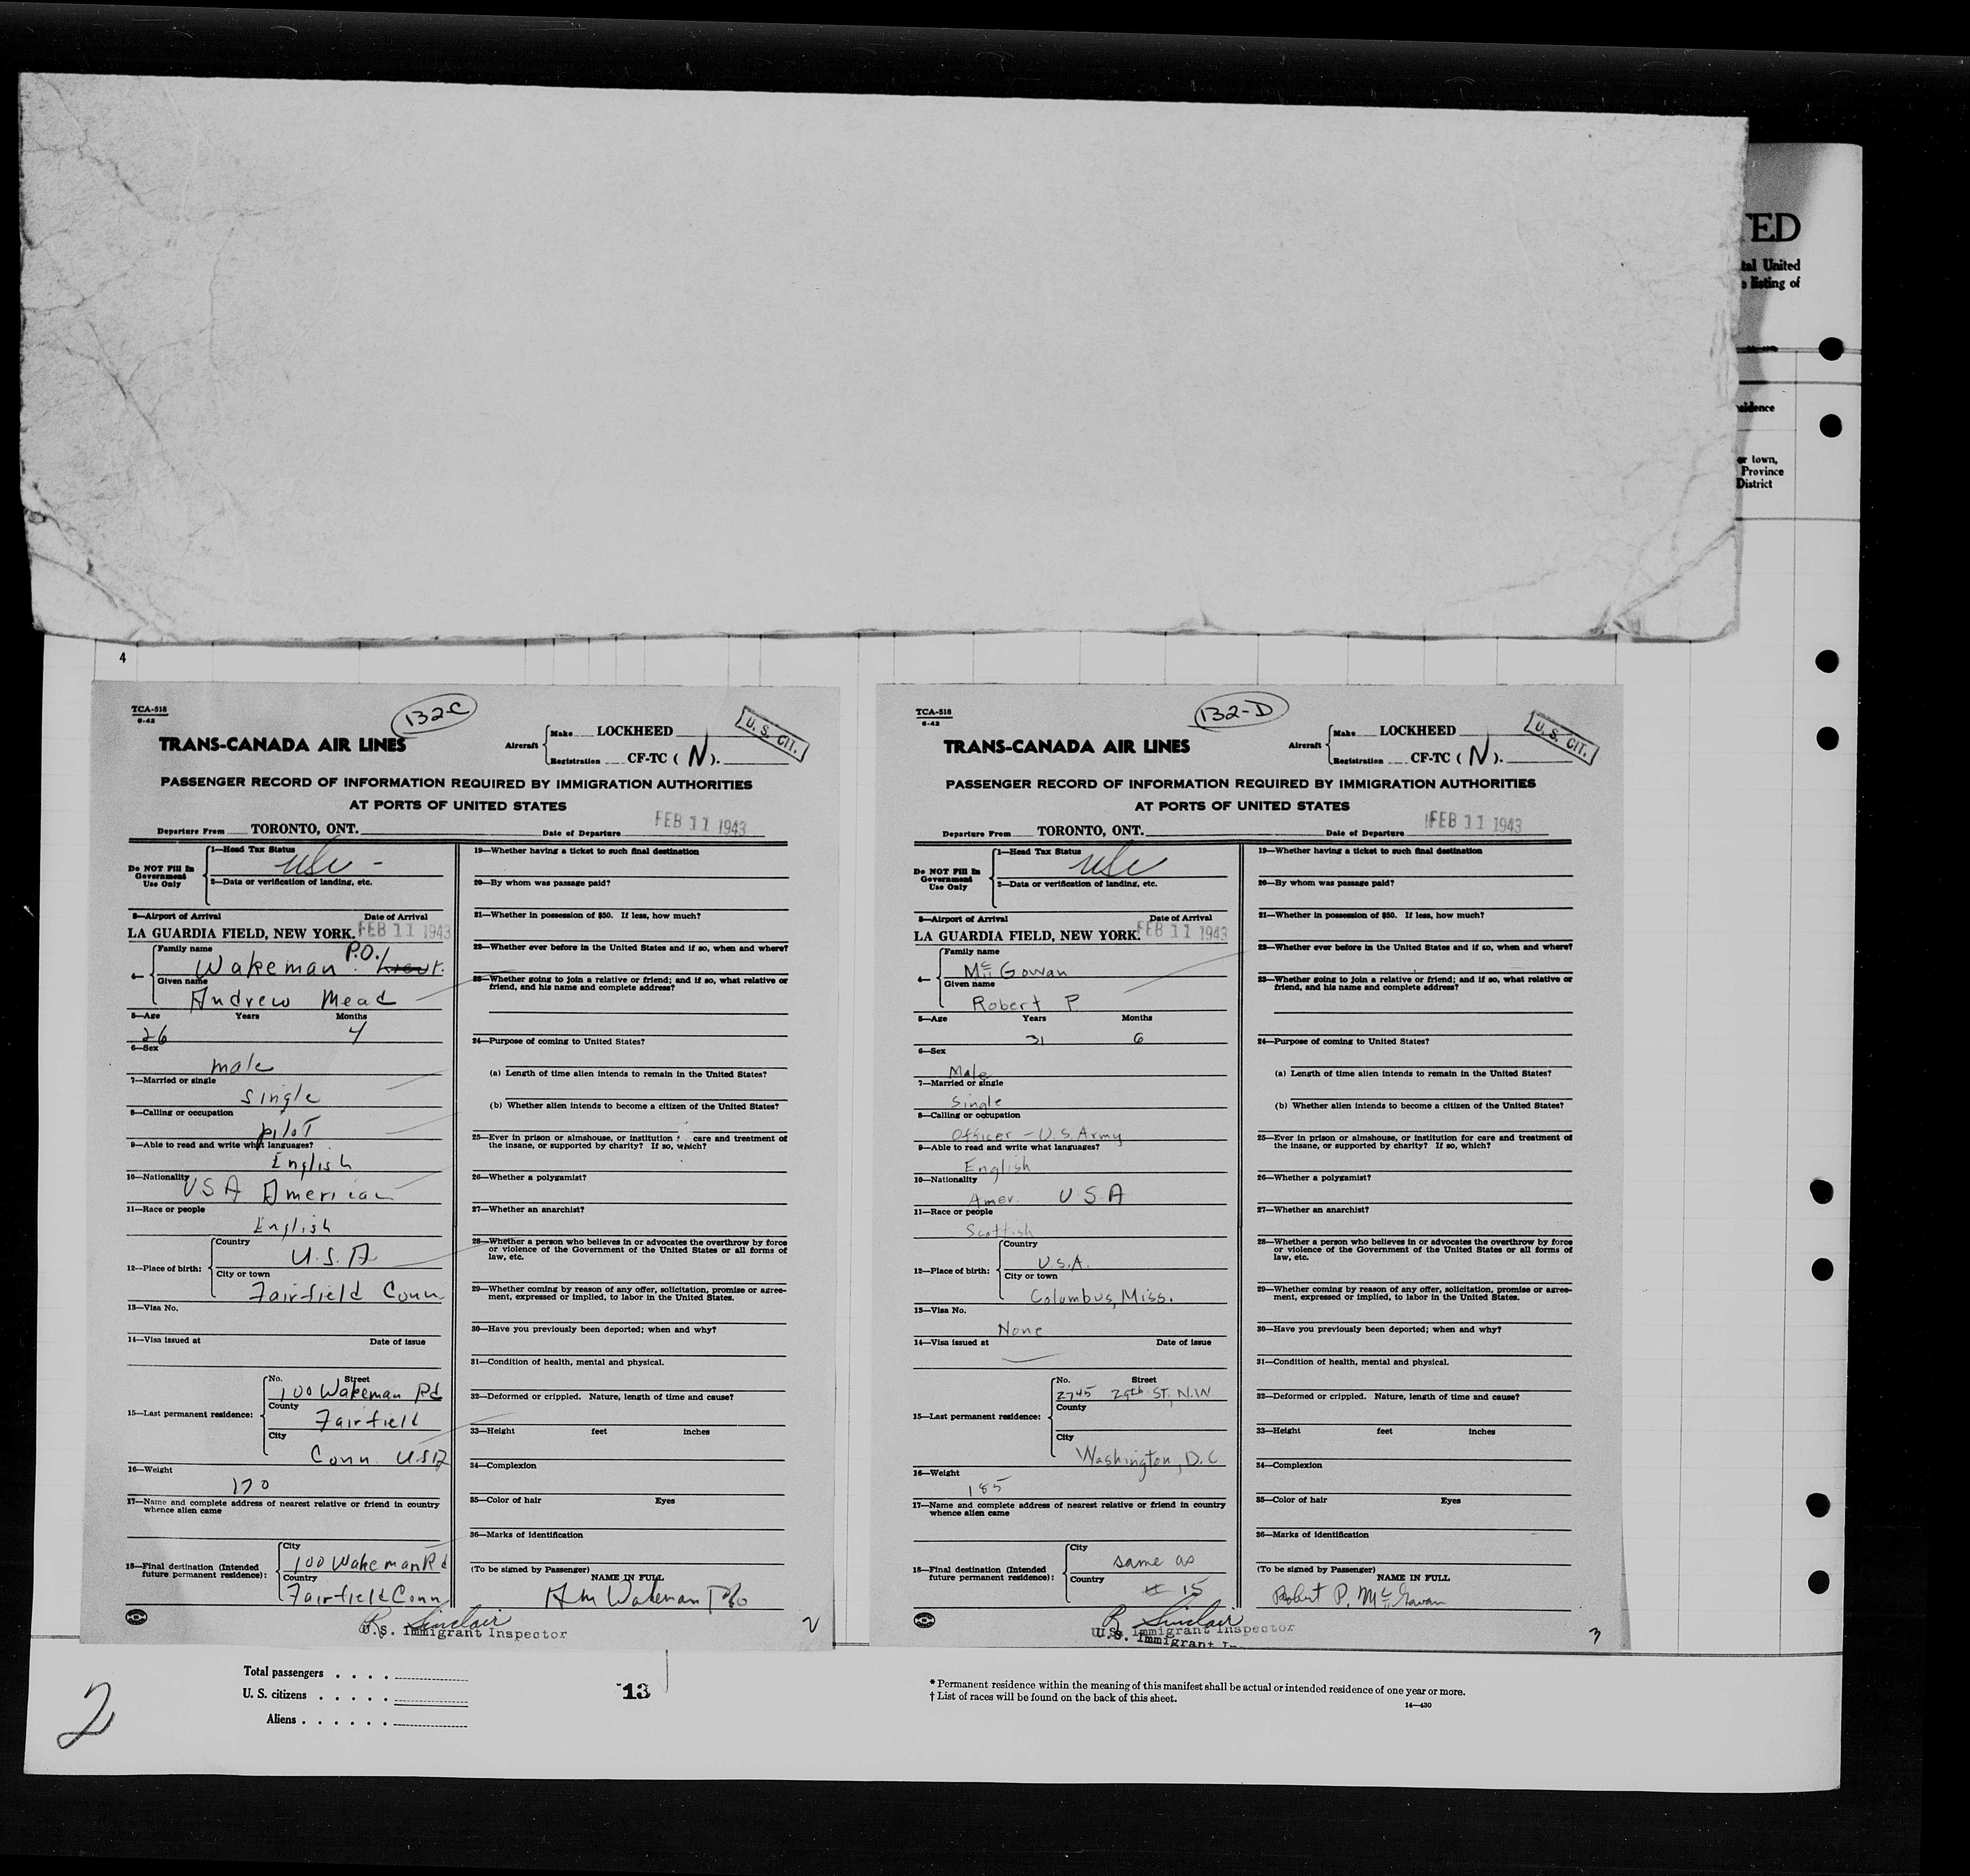 TED
tal United
listing of
sidence
or town,
Province
District
4
TCA-518
6-42
132-C
TRANS-CANADA AIR LINES
Aircraft
Make LOCKHEED
Registration CF-TC ( N ).
U. S. CIT.
PASSENGER RECORD OF INFORMATION REQUIRED BY IMMIGRATION AUTHORITIES
AT PORTS OF UNITED STATES
Departure From TORONTO, ONT. Date of Departure FEB 11 1943
Do NOT Fill In
Government
Use Only
1—Head Tax Status
usc -
2—Data or verification of landing, etc.
3—Airport of Arrival Date of Arrival
LA GUARDIA FIELD, NEW YORK. FEB 11 1943
4— Family name
Wakeman P.O. Lieut.
Given name
Andrew Mead
5—Age Years Months
26 4
6—Sex
male
7—Married or single
single
8—Calling or occupation
pilot
9—Able to read and write what languages?
English
10—Nationality
USA American
11—Race or people
English
12—Place of birth:
Country
U.S.A
City or town
Fairfield Conn
13—Visa No.
14—Visa issued at Date of issue
15—Last permanent residence:
No. Street
100 Wakeman Rd
County
Fairfield
City
Conn. USA
16—Weight
170
17—Name and complete address of nearest relative or friend in country
whence alien came
18—Final destination (Intended
future permanent residence):
City
100 Wakeman Rd
Country
Fairfield Conn
19—Whether having a ticket to such final destination
20—By whom was passage paid?
21—Whether in possession of $50. If less, how much?
22—Whether ever before in the United States and if so, when and where?
23—Whether going to join a relative or friend; and if so, what relative or
friend, and his name and complete address?
24—Purpose of coming to United States?
(a) Length of time alien intends to remain in the United States?
(b) Whether alien intends to become a citizen of the United States?
25—Ever in prison or almshouse, or institution care and treatment of
the insane, or supported by charity? If so, which?
26—Whether a polygamist?
27—Whether an anarchist?
28—Whether a person who believes in or advocates the overthrow by force
or violence of the Government of the United States or all forms of
law, etc.
29—Whether coming by reason of any offer, solicitation, promise or agree-
ment, expressed or implied, to labor in the United States.
30—Have you previously been deported; when and why?
31—Condition of health, mental and physical.
32—Deformed or crippled. Nature, length of time and cause?
33—Height feet inches
34—Complexion
35—Color of hair Eyes
36—Marks of identification
(To be signed by Passenger)
NAME IN FULL
A M Wakeman P/O
R Sinclair
U.S. Immigrant Inspector
2
TCA-518
6-42
132-D
TRANS-CANADA AIR LINES
Aircraft
Make LOCKHEED
Registration CF-TC ( N ).
U. S. CIT.
PASSENGER RECORD OF INFORMATION REQUIRED BY IMMIGRATION AUTHORITIES
AT PORTS OF UNITED STATES
Departure From TORONTO, ONT. Date of Departure FEB 11 1943
Do NOT Fill In
Government
Use Only
1—Head Tax Status
usc
2—Data or verification of landing, etc.
3—Airport of Arrival Date of Arrival
LA GUARDIA FIELD, NEW YORK. FEB 11 1943
4— Family name
McGowan
Given name
Robert P.
5—Age Years Months
31 6
6—Sex
Male
7—Married or single
Single
8—Calling or occupation
Officer - U.S. Army
9—Able to read and write what languages?
English
10—Nationality
Amer. U.S.A
11—Race or people
Scottish
12—Place of birth:
Country
U.S.A.
City or town
Columbus, Miss.
13—Visa No.
None
14—Visa issued at Date of issue
15—Last permanent residence:
No. Street
2745 29th ST. N.W.
County
City
Washington, D.C
16—Weight
185
17—Name and complete address of nearest relative or friend in country
whence alien came
18—Final destination (Intended
future permanent residence):
City
same as
Country
# 15
19—Whether having a ticket to such final destination
20—By whom was passage paid?
21—Whether in possession of $50. If less, how much?
22—Whether ever before in the United States and if so, when and where?
23—Whether going to join a relative or friend; and if so, what relative or
friend, and his name and complete address?
24—Purpose of coming to United States?
(a) Length of time alien intends to remain in the United States?
(b) Whether alien intends to become a citizen of the United States?
25—Ever in prison or almshouse, or institution for care and treatment of
the insane, or supported by charity? If so, which?
26—Whether a polygamist?
27—Whether an anarchist?
28—Whether a person who believes in or advocates the overthrow by force
or violence of the Government of the United States or all forms of
law, etc.
29—Whether coming by reason of any offer, solicitation, promise or agree-
ment, expressed or implied, to labor in the United States.
30—Have you previously been deported; when and why?
31—Condition of health, mental and physical.
32—Deformed or crippled. Nature, length of time and cause?
33—Height feet inches
34—Complexion
35—Color of hair Eyes
36—Marks of identification
(To be signed by Passenger)
NAME IN FULL
Robert P. McGowan
R Sinclair
U.S. Immigrant Inspector
U.S. Immigrant I
3
Total passengers . . . .
U. S. citizens . . . . .
Aliens . . . . . .
13
2
* Permanent residence within the meaning of this manifest shall be actual or intended residence of one year or more.
† List of races will be found on the back of this sheet.
14—430